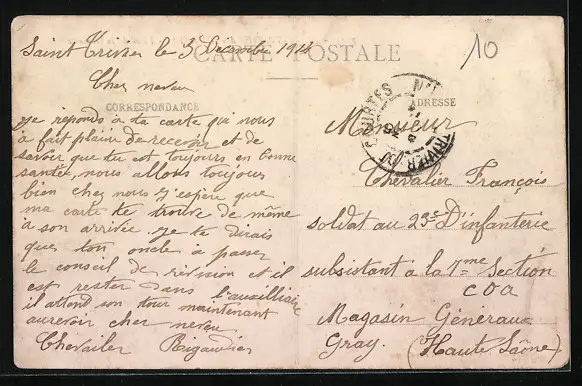 10
CARTE POSTALE
Saint Trivier le 3 Décembre 1914
Cher neveu
CORRESPONDANCE
Je reponds à ta carte qui nous
à fait plaisir de recevoir et de
savoir que tu est toujours en bonne
santée, nous allons toujours
bien chez nous j'espère que
ma carte te trouve de même
à son arrivée. Je te dirais
que ton oncle à passer
le conseil de révision et il
est rester dans l'auxilliaire
il attend son tour maintenant
aurevoir cher neveu
Chevalier Rigaudier
COURTES
ADRESSE
Monsieur
Chevalier François
soldat au 23e D'infanterie
subsistant a la 7me Section
COA
Magasin Généraux
Gray. (Haute Saône)